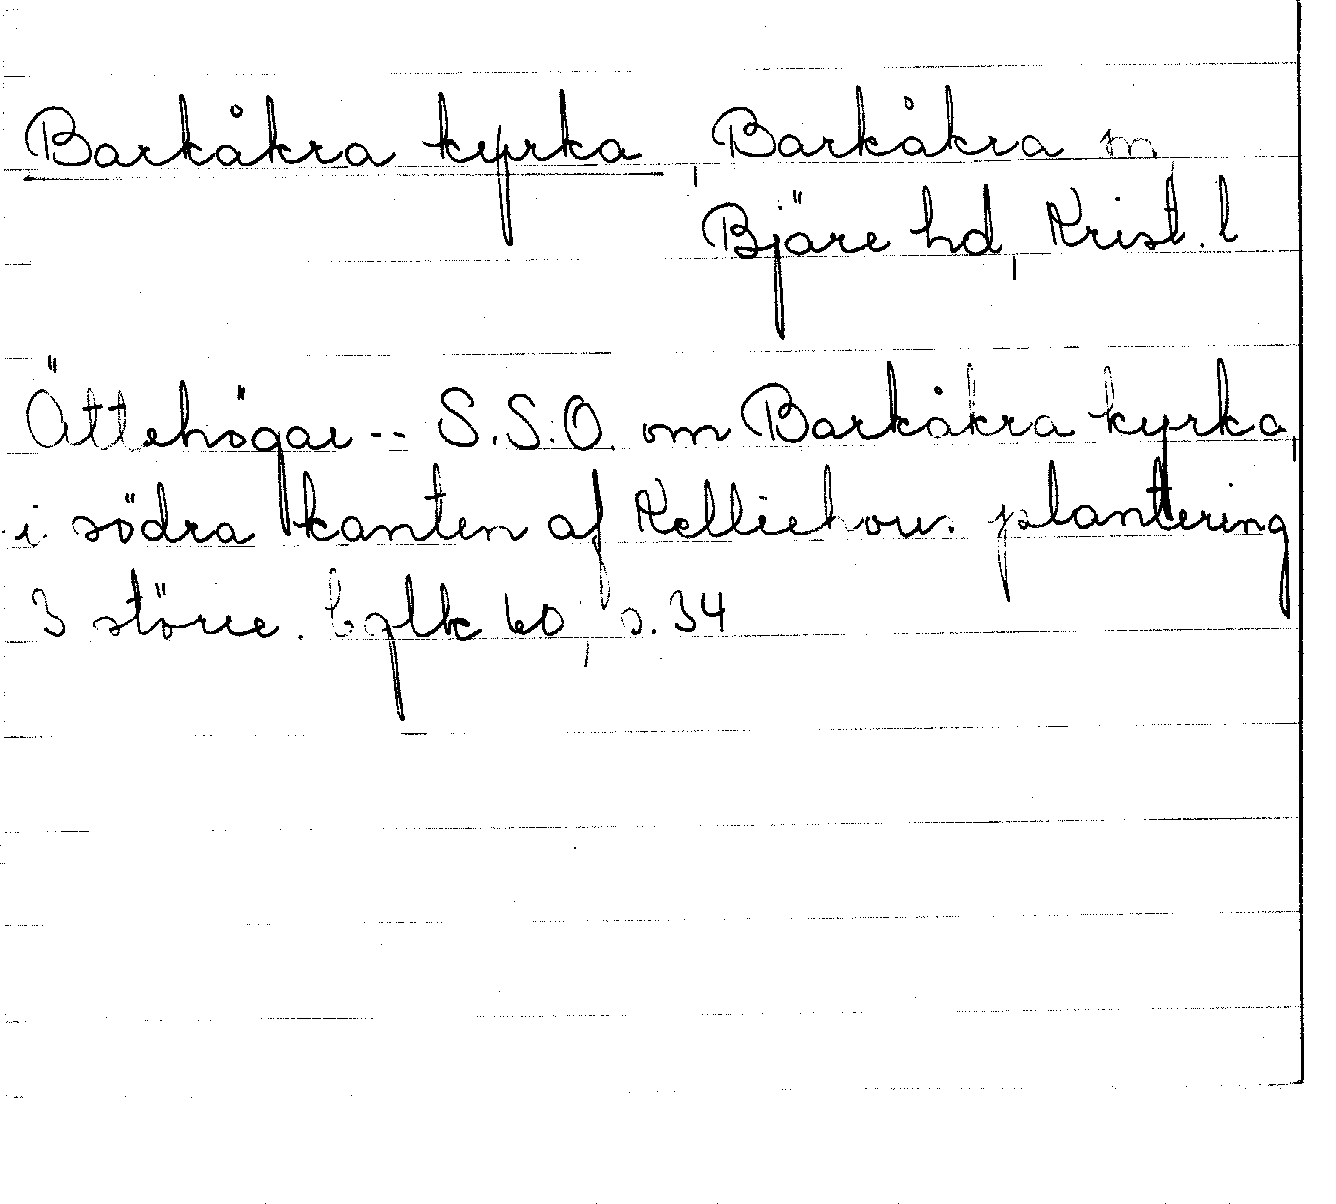 Barkåkra kyrka, Barkåkra sn,
Bjäre hd, Krist. l
Ättehögar -- S.S.O. om Barkåkra kyrka,
i södra kanten af plantering
3 större. bglk 60, s. 34